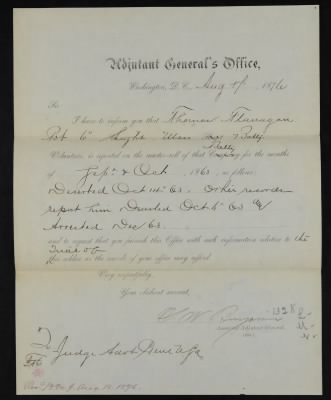 Adjutant General's Office,
Washington, D. C., Aug 8", 1876
Sir
I have to inform you that Thomas Flanagan
Pvt Co Mass Batty
Batty
Volunteers, is reported on the muster-roll of that Company for the months
of Sept & Oct, 1863, as follows:
Deserted Oct 1863. Other records
report him Deserted Oct 6" 63 &
Arrested Dec 63.
and to request that you furnish this Office with such information relative to the
trial of
this soldier as the records of your office may afford.
Very respectfully,
Your obedient servant,
Assistant Adjutant General.
To Judge Advt Genl USA